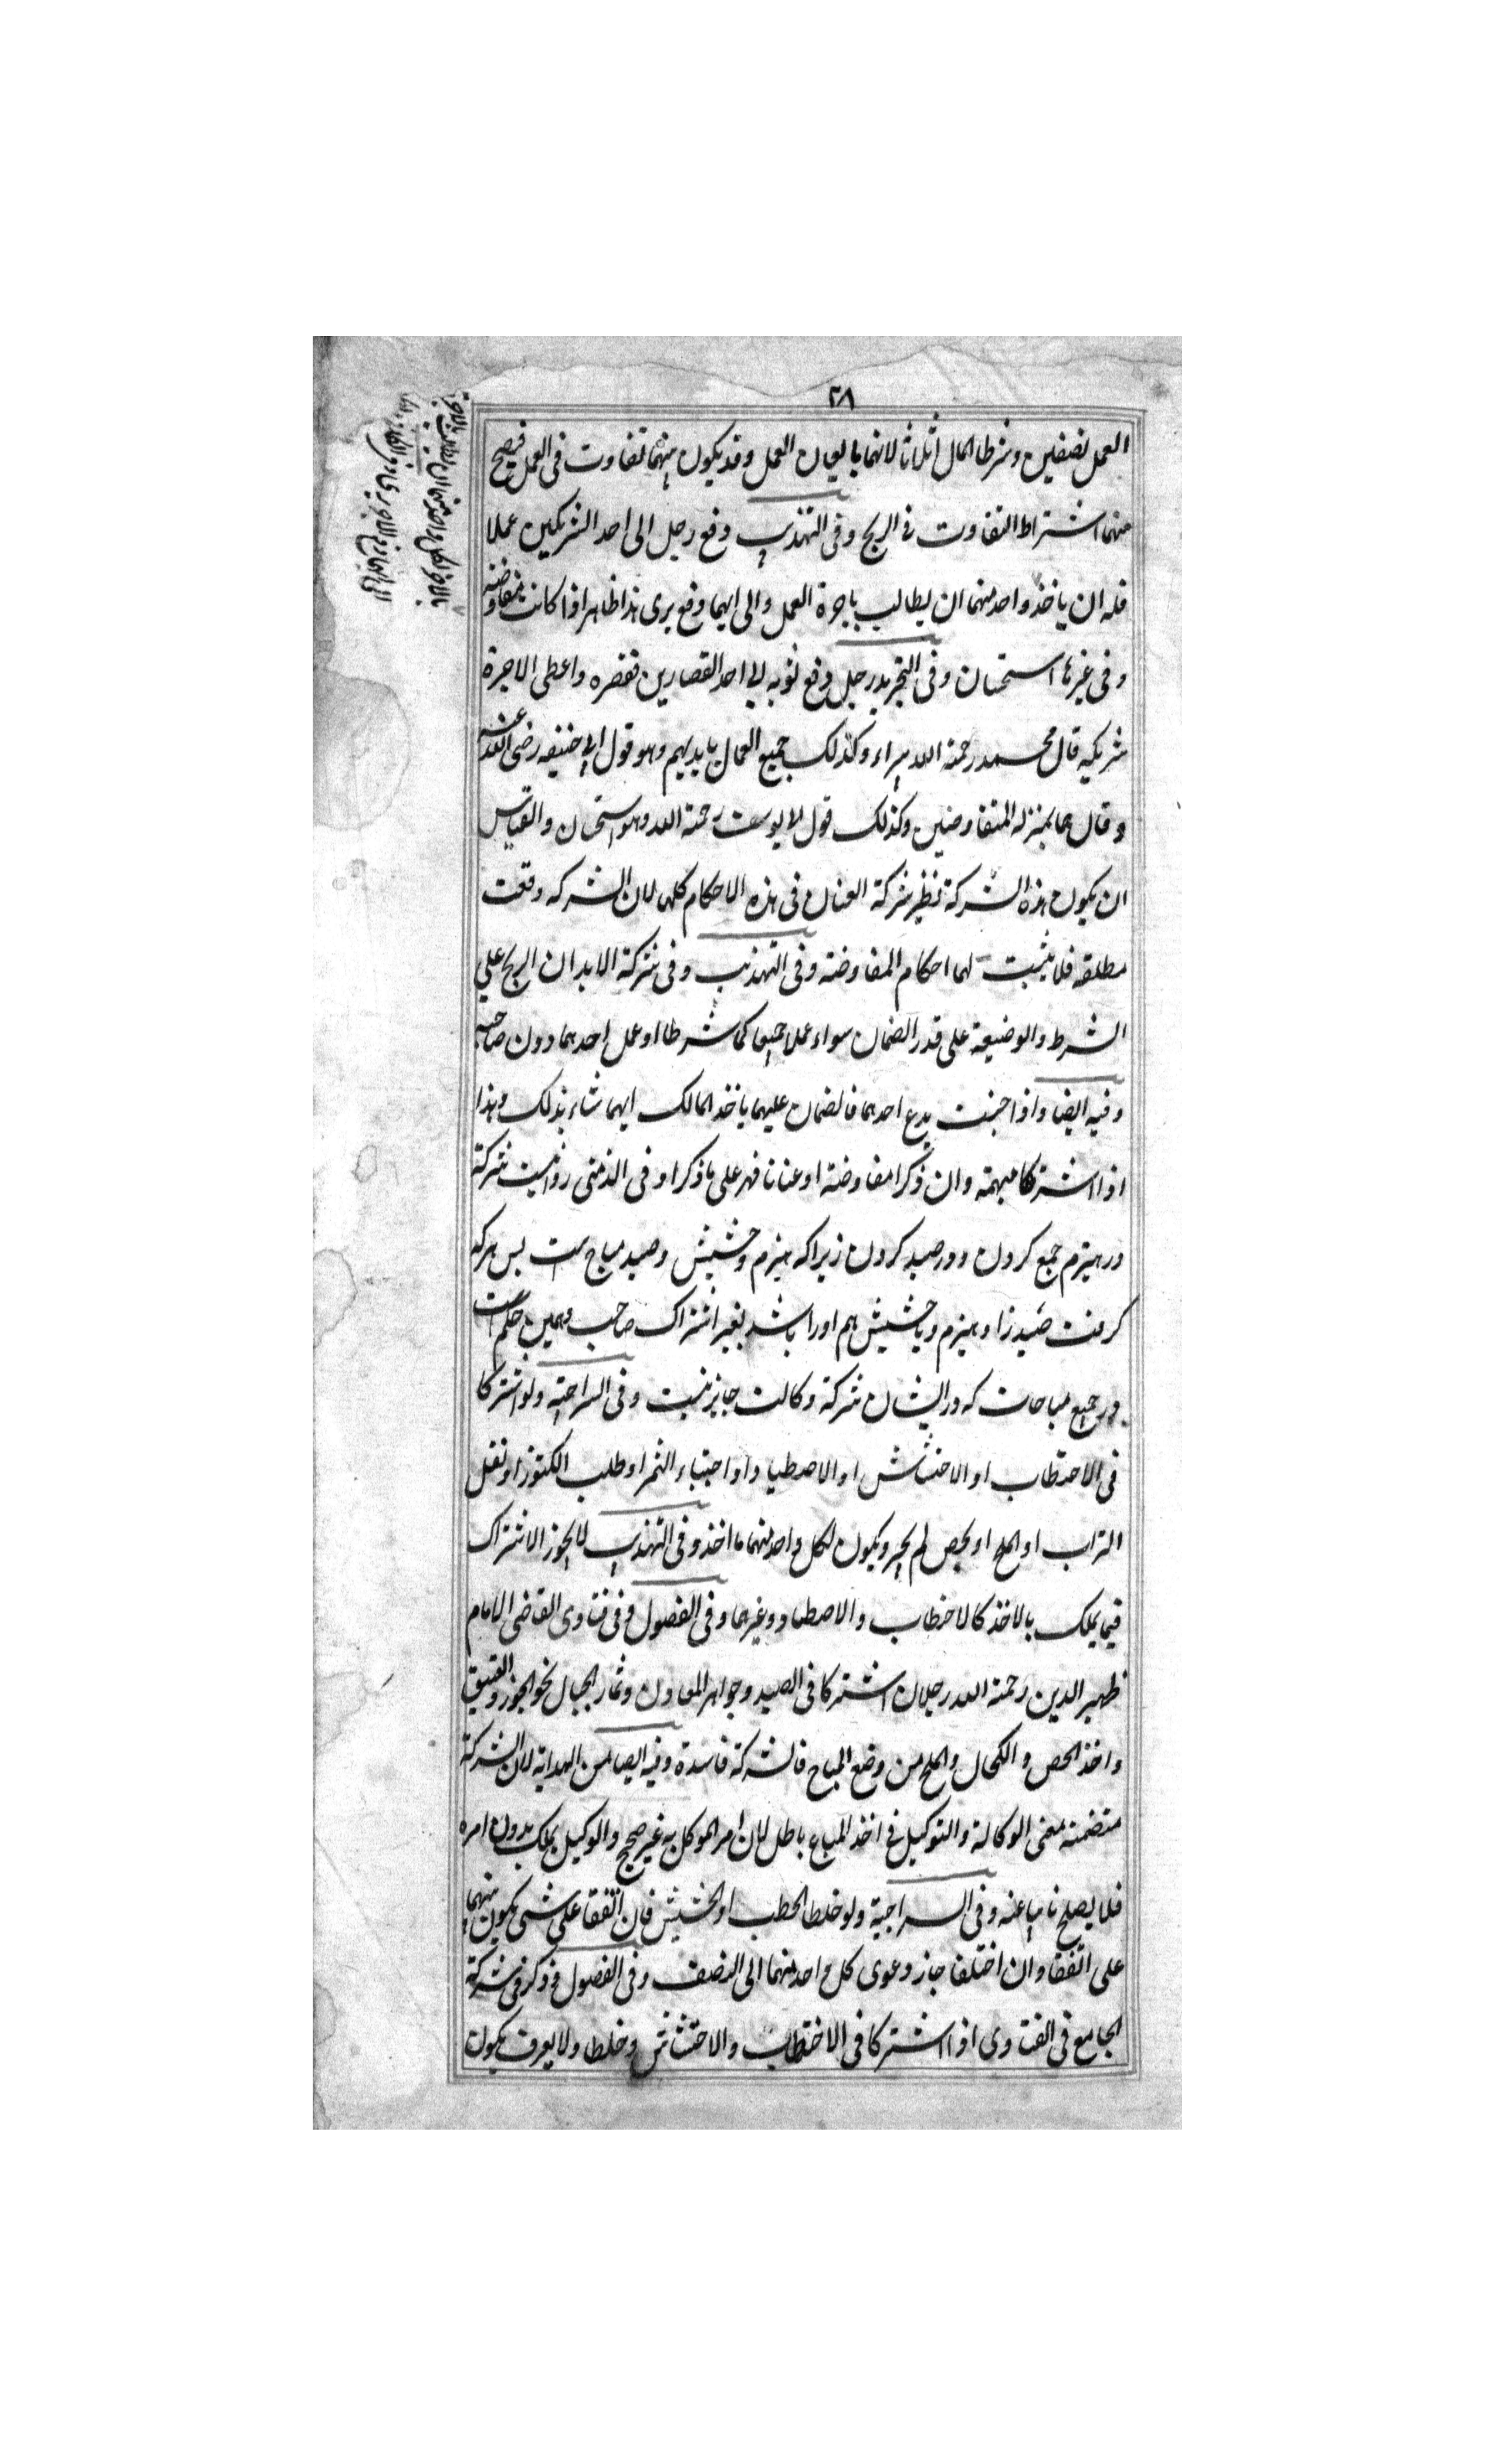 ٢٨
العمل نصفین وشرطا المال اثلاثا لانهما یا لعمل وقد یکون بینهما تفاوت فی العمل فیصح
منهما اشتراط التفاوت فی الربح وفی التهذیب دفع رجل الی احد الشریکین عملا
فله ان یاخذ واحد منهما ان یطالب باجرة العمل والی ایهما دفع بری هذا ظاهر اذا کانت مفاوضه
وفی غیرها استحسان وفی التجرید رجل دفع ثوبه الی احد القصارین فقصره واعطی الاجرة
شریکیه قال محمد رحمة الله براء وکذلک جمیع العمال بایدیهم وهو قول ابی حنیفه رضی الله عنه
وقال هما بمنزله المتفاوضین وکذلک قول ابو یوسف رحمة الله وهو استحسان والقیاس
ان یکون هذه الشرکة نظیر شرکة العنان فی هذه الاحکام کلها لان الشرکه وقعت
مطلقه فلا یثبت لهما احکام المفاوضته وفی التهذیب وفی شرکة الابدان الربح علی
الشرط والوضیعة علی قدر الضمان سواء عملا جمیعا کما شرطا او عمل احدهما دون صاحبه
وفیه ایضا واذا جنت ید احدهما فالضمان علیهما یاخذ المالک ایهما شاء بذلک وهذا
اذا اشترکا مبهمة وان ذکرا مفاوضة او عنانا فهر علی ما ذکرا وفی الذمتی روا نیست شرکة
در هیزم جمع کردن و در صید کردن زیراکه هیزم وحشیش وصید مباح ست پس هرکه
گرفت صید را وهیزم ویا حشیش هم اورا باشد بغیر اشتراک صاحب وهمین حکم است
در جمیع مباحات که در ایشان شرکة وکالت جایز نیست وفی السراجیة ولو اشترکا
فی الاحتطاب او الاحتشاش او الاصطیاد او اجتناء الثمر او طلب الکنوز او نقل
التراب او الملح او الجص لم یجز ویکون لکل واحد منهما ما اخذ وفی التهذیب لا یجوز الاشتراک
فیما یملک بالاخذ کالاحتطاب والاصطیاد وغیرهما وفی الفصول وفی فتاوی القاضی الامام
ظهیر الدین رحمة الله رجلان اشترکا فی الصید وجواهر المعادن وثمار الجبال نحو الجوز والفستق
واخذ الجص والکحال والملح من وضع المباح فالشرکة فاسدة وفیه ایضا من الهدایة لان الشرکة
متضمنة معنی الوکالة والتوکیل فی اخذ المباح باطل لان امر الموکل به غیر صحیح والوکیل یملک بدون امره
فلا یصلح نائبا عنه وفی السراجیة ولو خلطا الحطب او الحشیش فان اتفقا علی شی یکون بینهما
علی اتفقا وان اختلفا جاز دعوی کل واحد منهما الی النصف وفی الفصول وذکر فی شرکة
الجامع فی الفتاوی اذا اشترکا فی الاحتطاب والاحتشاش وخلطا ولا یعرف یکون